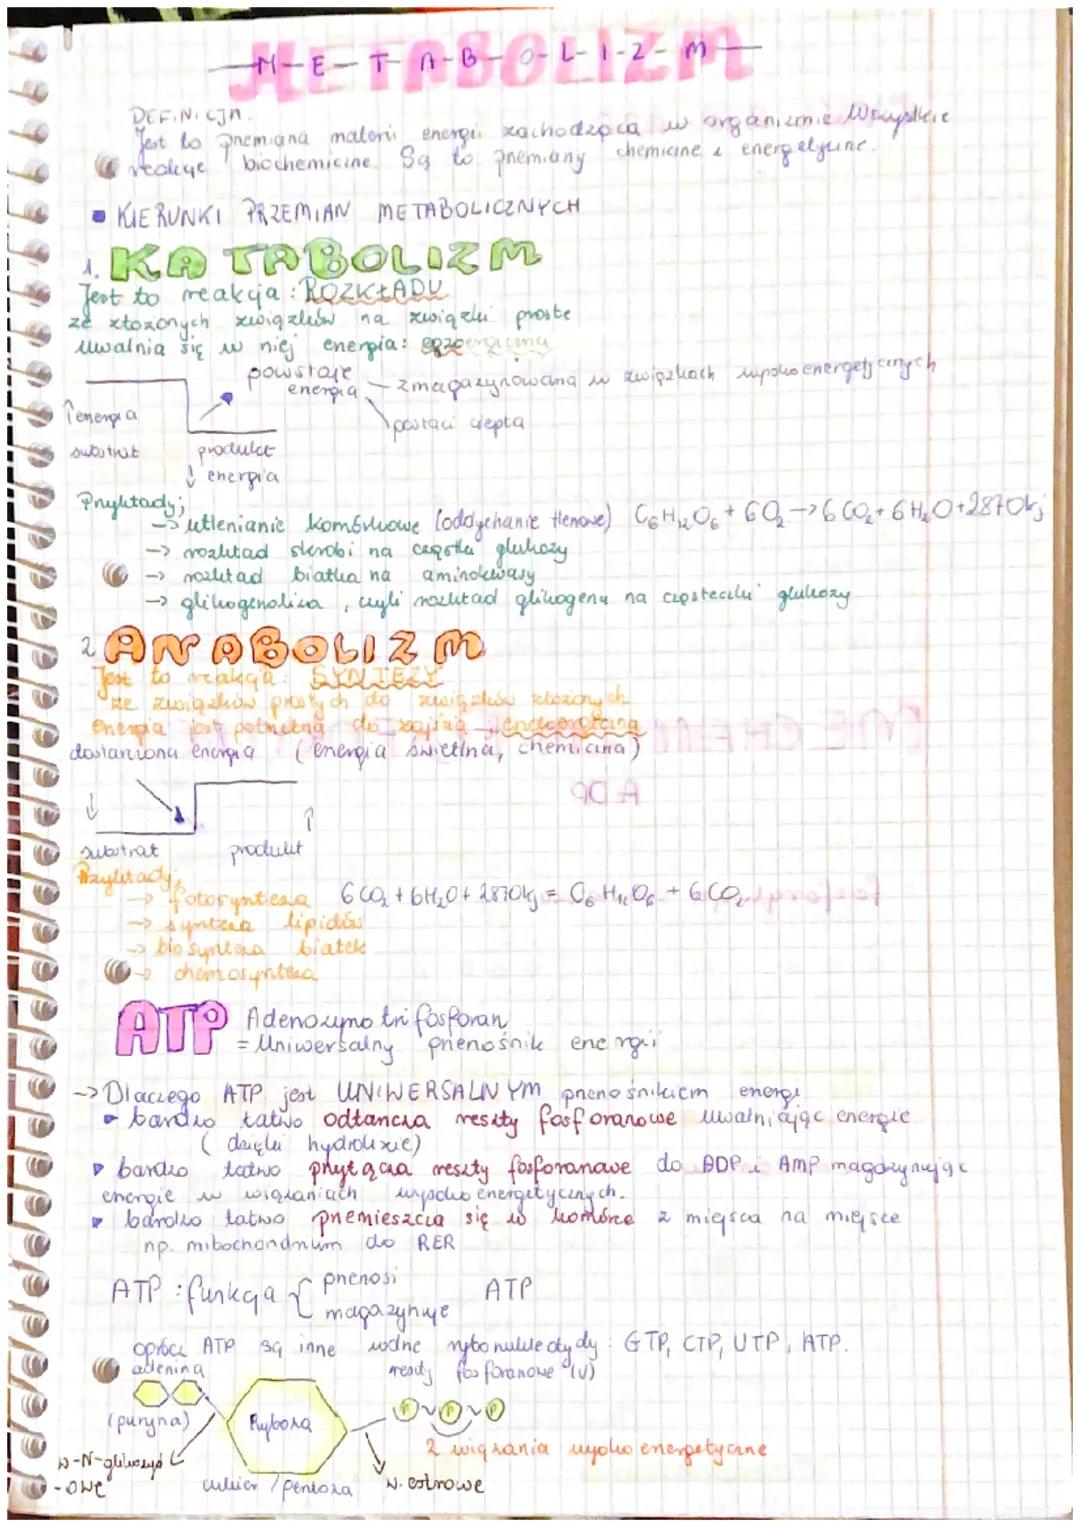 M-E-T-A-B-O-L-I-Z-M
DEFINICJA.
Jest to przemiana materii energii zachodząca w organizmie Wszystkie
reakcje biochemiczne. Są to przemiany chemiczne i energetyczne.
KIERUNKI PRZEMIAN METABOLICZNYCH
1. KATABOLIZM
Jest to reakcja: ROZKŁADU
ze złożonych związków na związki proste
Uwalnia się w niej energia: egzoergiczna
powstaje
energia – zmagazynowana w związkach wysokoenergetycznych
postaci ciepła
↑energia
substrat
produkt
↓ energia
Przykłady;
-> utlenianie komórkowe (oddychanie tlenowe) C6H12O6 + 6O2 -> 6CO2 + 6H2O + 2870kj
-> rozkład skrobi na cząstki glukozy
-> rozkład białka na aminokwasy
-> glikogenoliza, czyli rozkład glikogenu na cząsteczki glukozy
2 ANABOLIZM
Jest to reakcja: SYNTEZY
ze związków prostych do związków złożonych
energia jest potrzebna do zajścia, endoergiczna
dostarczona energia (energia świetlna, chemiczna)
↓
↑
substrat
produkt
Przykłady;
-> fotosynteza 6CO2 + 6H2O + 2870kj = C6H12O6 + 6CO2
-> synteza lipidów
-> biosynteza białek
-> chemosynteza
ATP Adenozyno trifosforan
= Uniwersalny przenośnik energii
-> Dlaczego ATP jest UNIWERSALNYM przenośnikiem energi
bardzo łatwo odłancza reszty fosforanowe uwalniając energie
(dzięki hydrolizie)
bardzo łatwo przyłącza reszty fosforanowe do ADP i AMP magazynując
energie w wiązaniach wysokoenergetycznych.
bardzo łatwo przemieszcza się w komórce z miejsca na miejsce
np. mitochondrium do RER
ATP: funkcja { przenosi
magazynuje
ATP
oprócz ATP są inne wolne rybonukleotydy: GTP, CTP, UTP, ATP.
adenina
reszty fosforanowe (V)
(puryna)
Ryboza
P~P~P
2 wiązania wysokoenergetyczne
w-N-glikozyd
-OWE
cukier / pentoza
w. estrowe